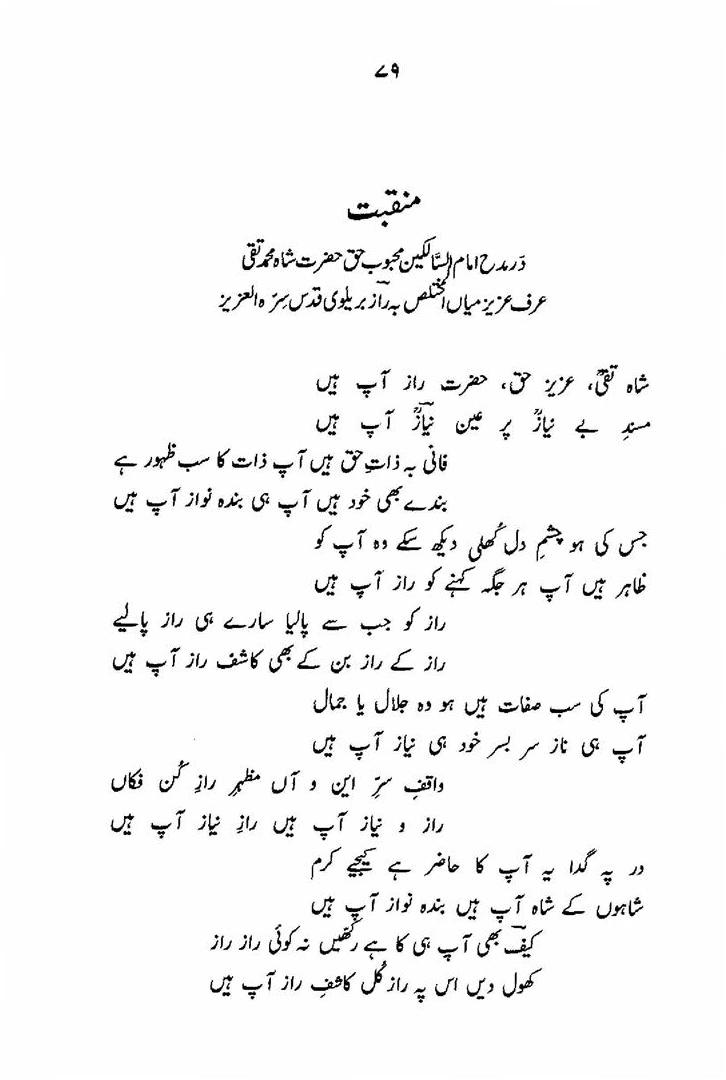 ۷۹
منقبت
دَر مدح امام السَّالکین محبوب حق حضرت شاہ محمد تقی
عرف عزیز میاں المتخلص بہ رازؔ بریلوی قدس سِرّہ العزیز
شاہ تقیؒ، عزیز حق، حضرت راز آپ ہیں
مسندِ بے نیازؒ پر عین نیازؒ آپ ہیں
فانی بہ ذاتِ حق ہیں آپ ذات کا سب ظہور ہے
بندے بھی خود ہیں آپ ہی بندہ نواز آپ ہیں
جس کی ہو چشمِ دل کُھلی دیکھ سکے وہ آپ کو
ظاہر ہیں آپ ہر جگہ کہنے کو راز آپ ہیں
راز کو جب سے پالیا سارے ہی راز پالیے
راز کے راز بن کے بھی کاشف راز آپ ہیں
آپ کی سب صفات ہیں ہو وہ جلال یا جمال
آپ ہی ناز سر بسر خود ہی نیاز آپ ہیں
واقفِ سرِّ این و آں مظہرِ رازِ کُن فکاں
راز و نیاز آپ ہیں رازِ نیاز آپ ہیں
در پہ گدا یہ آپ کا حاضر ہے کیجیے کرم
شاہوں کے شاہ آپ ہیں بندہ نواز آپ ہیں
کیفؔ بھی آپ ہی کا ہے رکھیں نہ کوئی راز راز
کھول دیں اس پہ راز کُل کاشفِ راز آپ ہیں